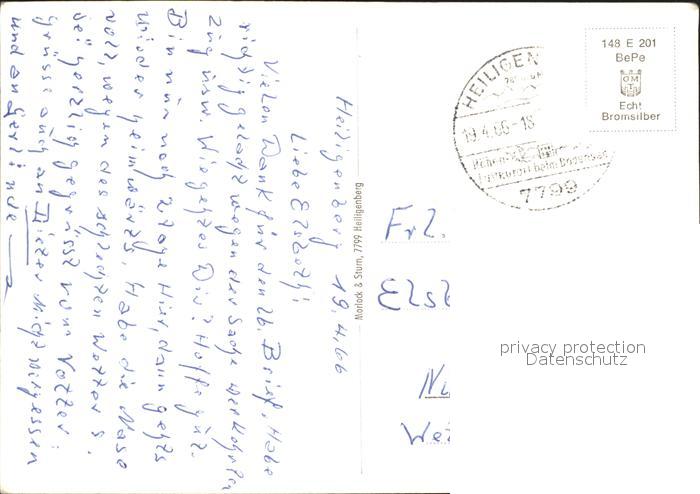 Heiligenberg 19.4.66
Liebe Elsbeth;
Vielen Dank für den lb. Brief, Habe
richtig gelacht wegen der Sache
usw. Wie geht es Dir? Hoffe gut.
Bin nun noch 2 Tage Hier, dann geht's
wieder heimwärts, Habe die Nase
voll, wegen des schlechten Wetters.
Sei herzlich gegrüsst vom Vetter:
Grüsse auch an Dieter Nicht vergessen
und an Gerlinde
Morlock & Sturm, 7799 Heiligenberg
148 E 201
BePe
OM
T
Echt
Bromsilber
HEILIGEN
19.4.66-18
7799
Frl.
Elsb
privacy protection
Datenschutz